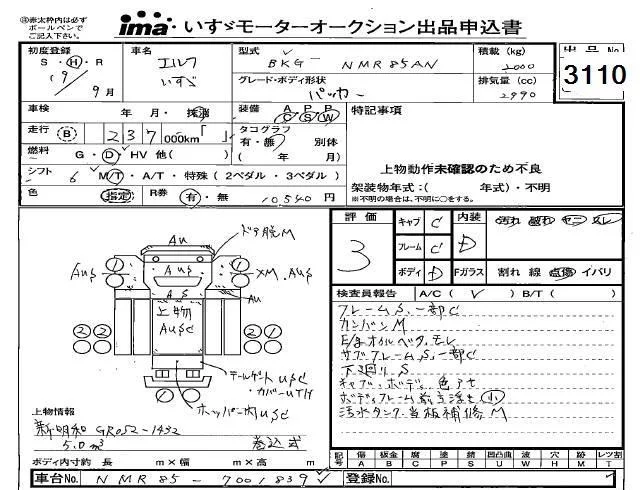 ㊟赤太枠内は必ず
ボールペンで
ご記入下さい。
ima いすゞモーターオークション出品申込書
初度登録 車名 型式 積載 (kg) 出品No
S・H・R 19/9月 エルフ いすゞ BKG- NMR85AN 2000
グレード・ボディ形状 排気量 (cc) 3110
パッカー 2990
車検 年 月・抹消 装備 A P P C S W 特記事項
走行 B 237 000km「 」 タコグラフ 有・無 別体
燃料 G・D・HV 他( ) ( 年 月) 上物動作未確認のため不良
シフト 6 M/T・A/T・特殊 (2ペダル・3ペダル) 架装物年式:( 年式)・不明
色 指定 R券 有・無 10540 円 ※不明の場合は、不明に○をする。
評価 キャブ C 内装 汚れ 破れ ヤニ スレ
3 フレーム C D
ボディ D Fガラス 割れ 線 点傷 イバリ
検査員報告 A/C ( ✓ ) B/T ( )
フレームS、一部C
カンバンM
E/gオイルベタ、モレ
サブフレームS、一部C
下廻りS
キャブ、ボディ、色アセ
ボディ、フレーム 小
汚水タンク、当板補修M
ドア脱M
AU
AUS
AUS
XM.AUS
AS
AU
上物
AUSC
テールゲートUSC
・カバーUTH
ホッパー内USC
上物情報
新明和 GR052-1432
5.0m³ 巻込式
ボディ内寸約 長 m×幅 m×高 m
記号 傷 板金 腐 塗 錆 凹凸曲 波 穴 跡 レツ割
A B C P S U W H M T
車台No. NMR85-7001839 登録No.